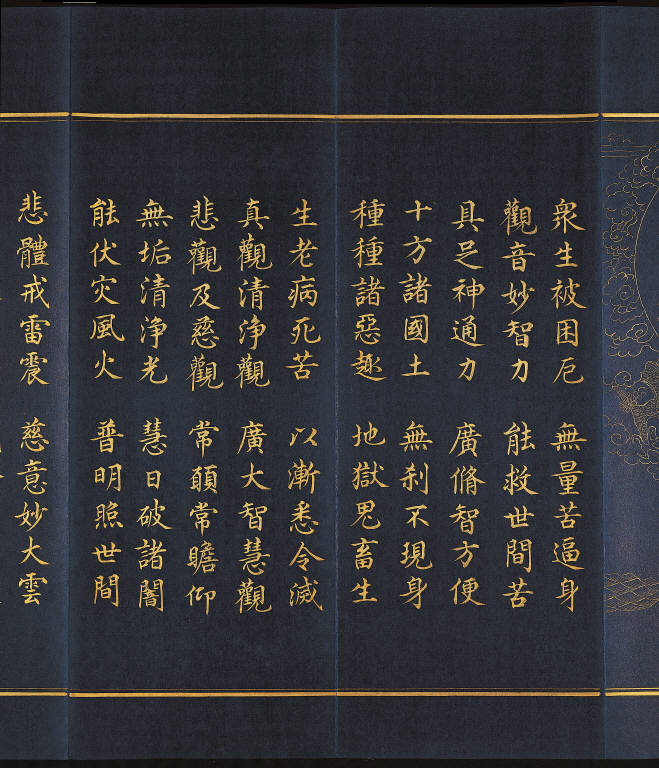 衆生被困厄 無量苦逼身
觀音妙智力 能救世間苦
具足神通力 廣脩智方便
十方諸國土 無刹不現身
種種諸惡趣 地獄鬼畜生
生老病死苦 以漸悉令滅
真觀清淨觀 廣大智慧觀
悲觀及慈觀 常願常瞻仰
無垢清淨光 慧日破諸闇
能伏灾風火 普明照世間
悲體戒雷震 慈意妙大雲